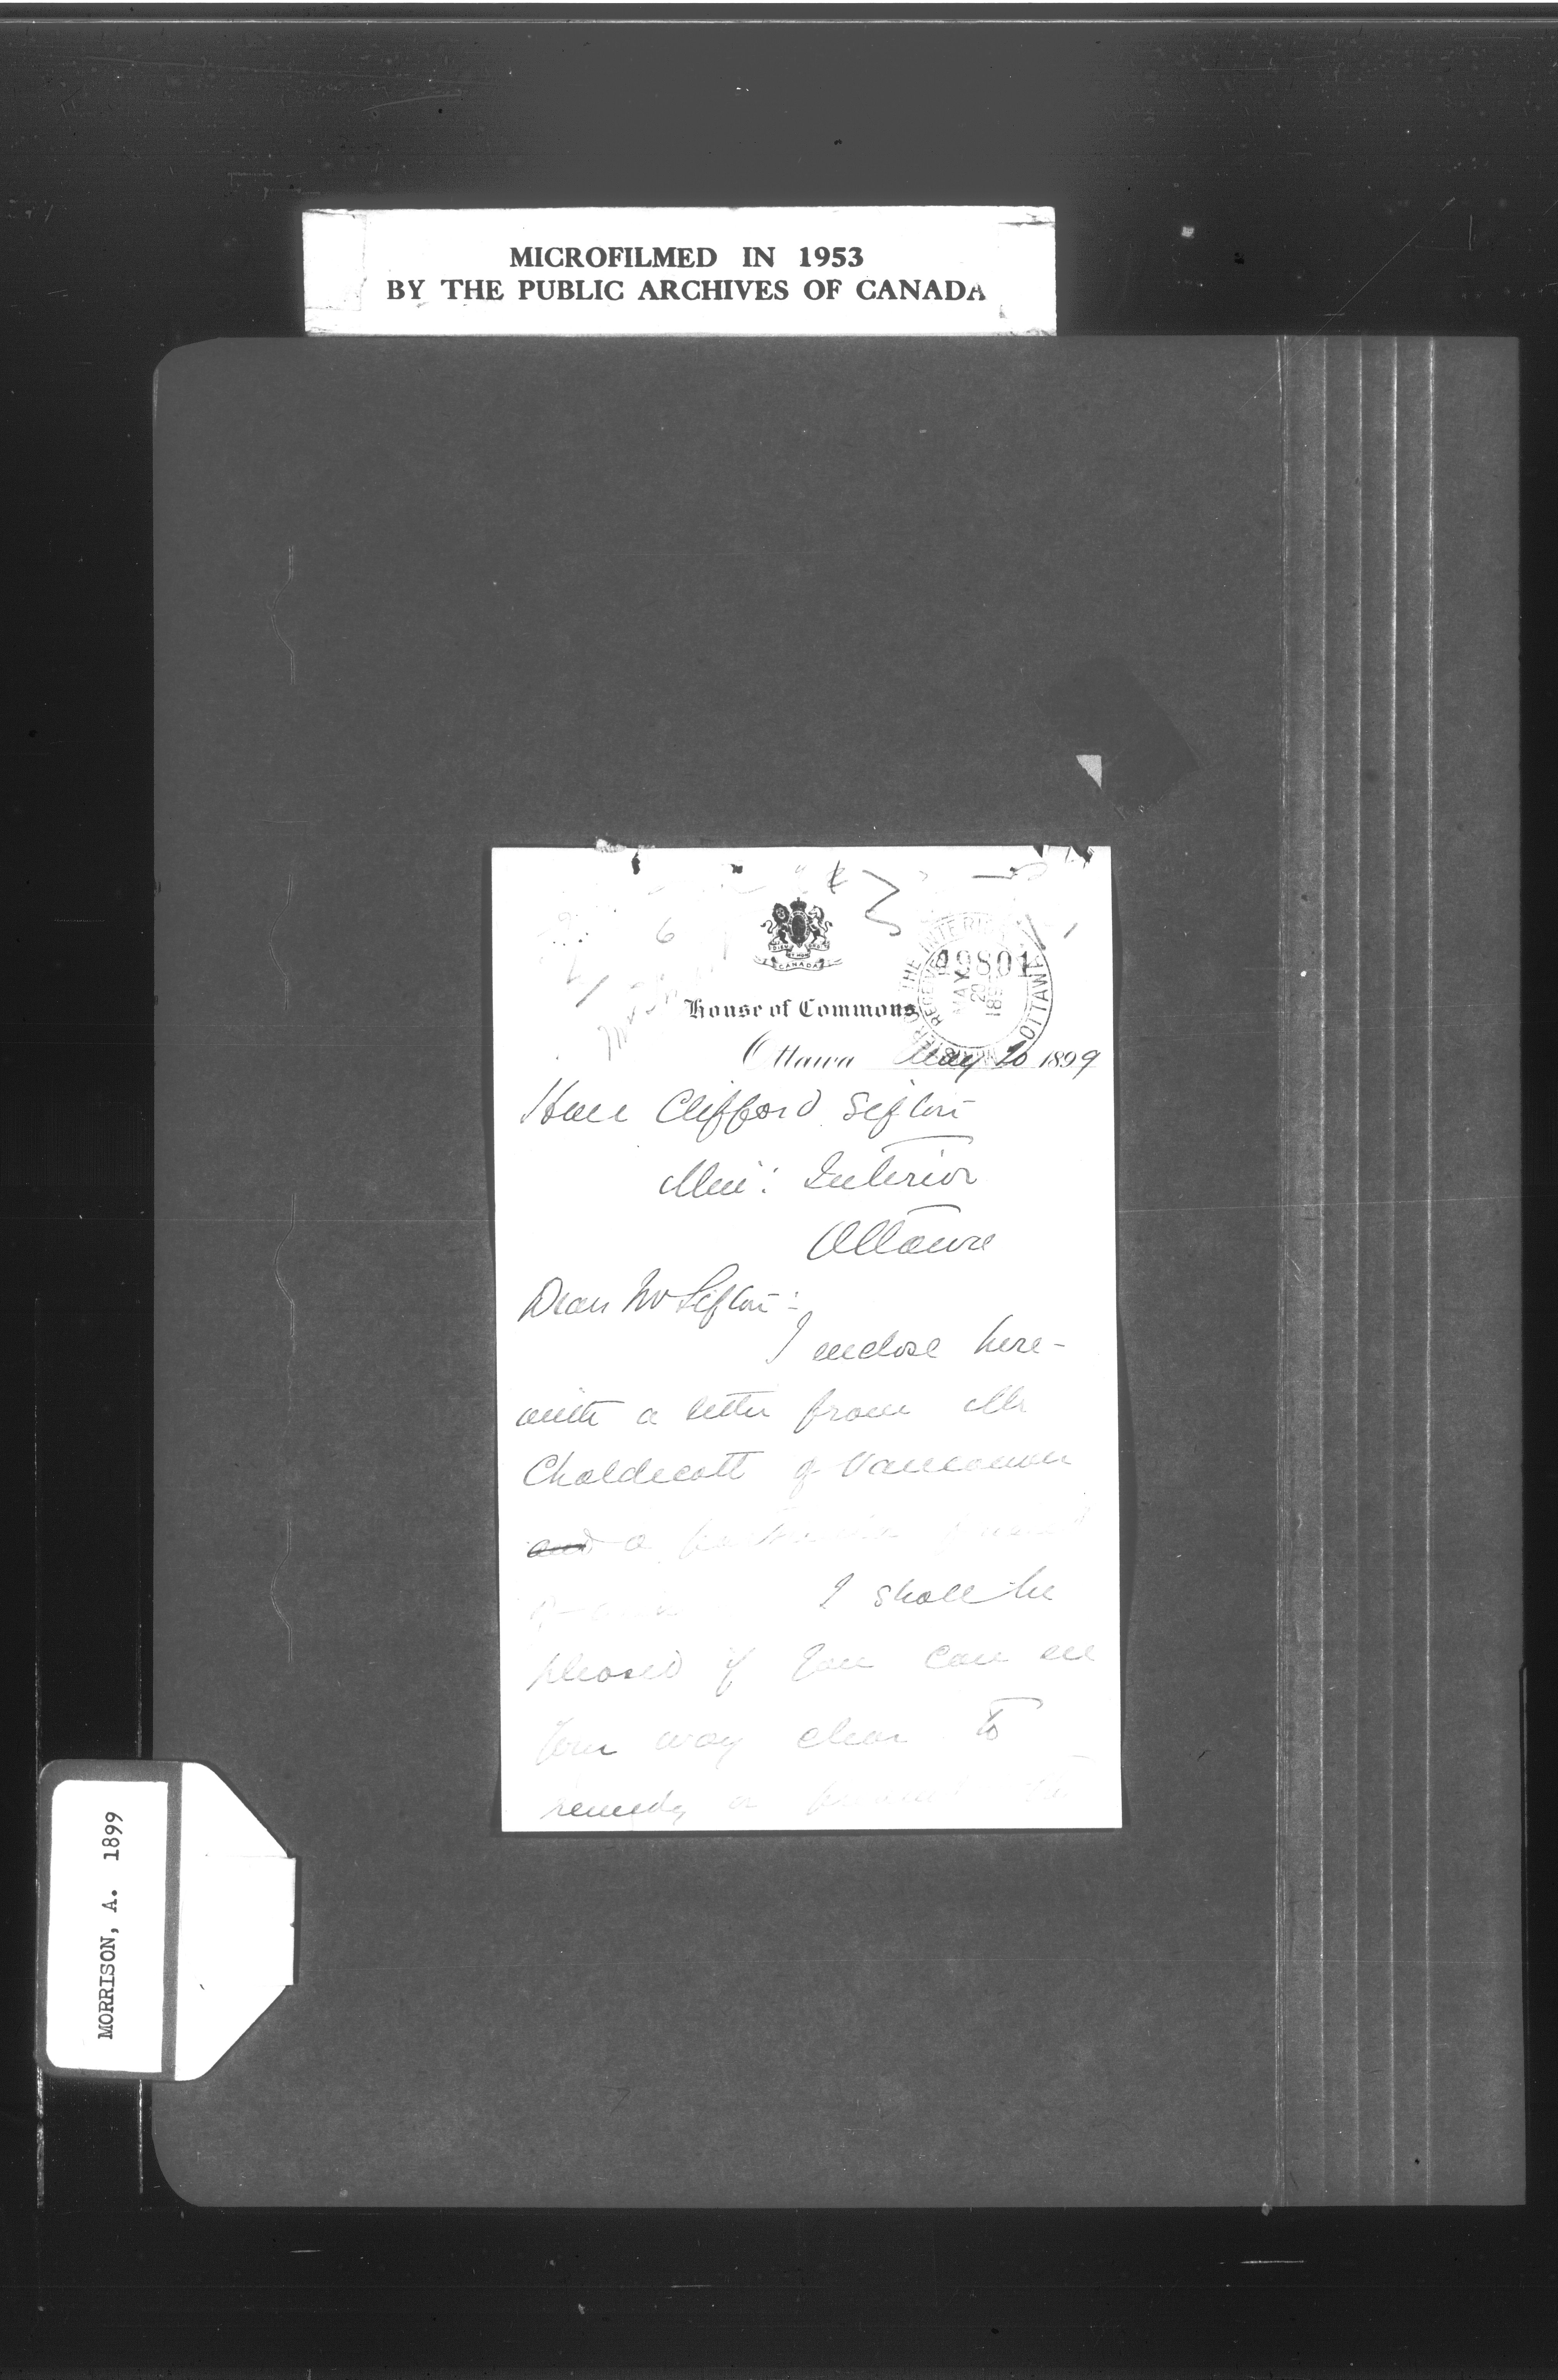 MICROFILMED IN 1953
BY THE PUBLIC ARCHIVES OF CANADA
CANADA
House of Commons
THE INTERIOR
OTTAWA
49801
MAY
20
Ottawa May 20 1899
Hon Clifford Sifton
Min: Interior
Ottawa
Dear Mr Sifton:-
I enclose here-
with a letter from Mr
Chaldecott of Vancouver
and a
I shall be
pleased if you can see
your way clear to
remedy or
MORRISON, A. 1899